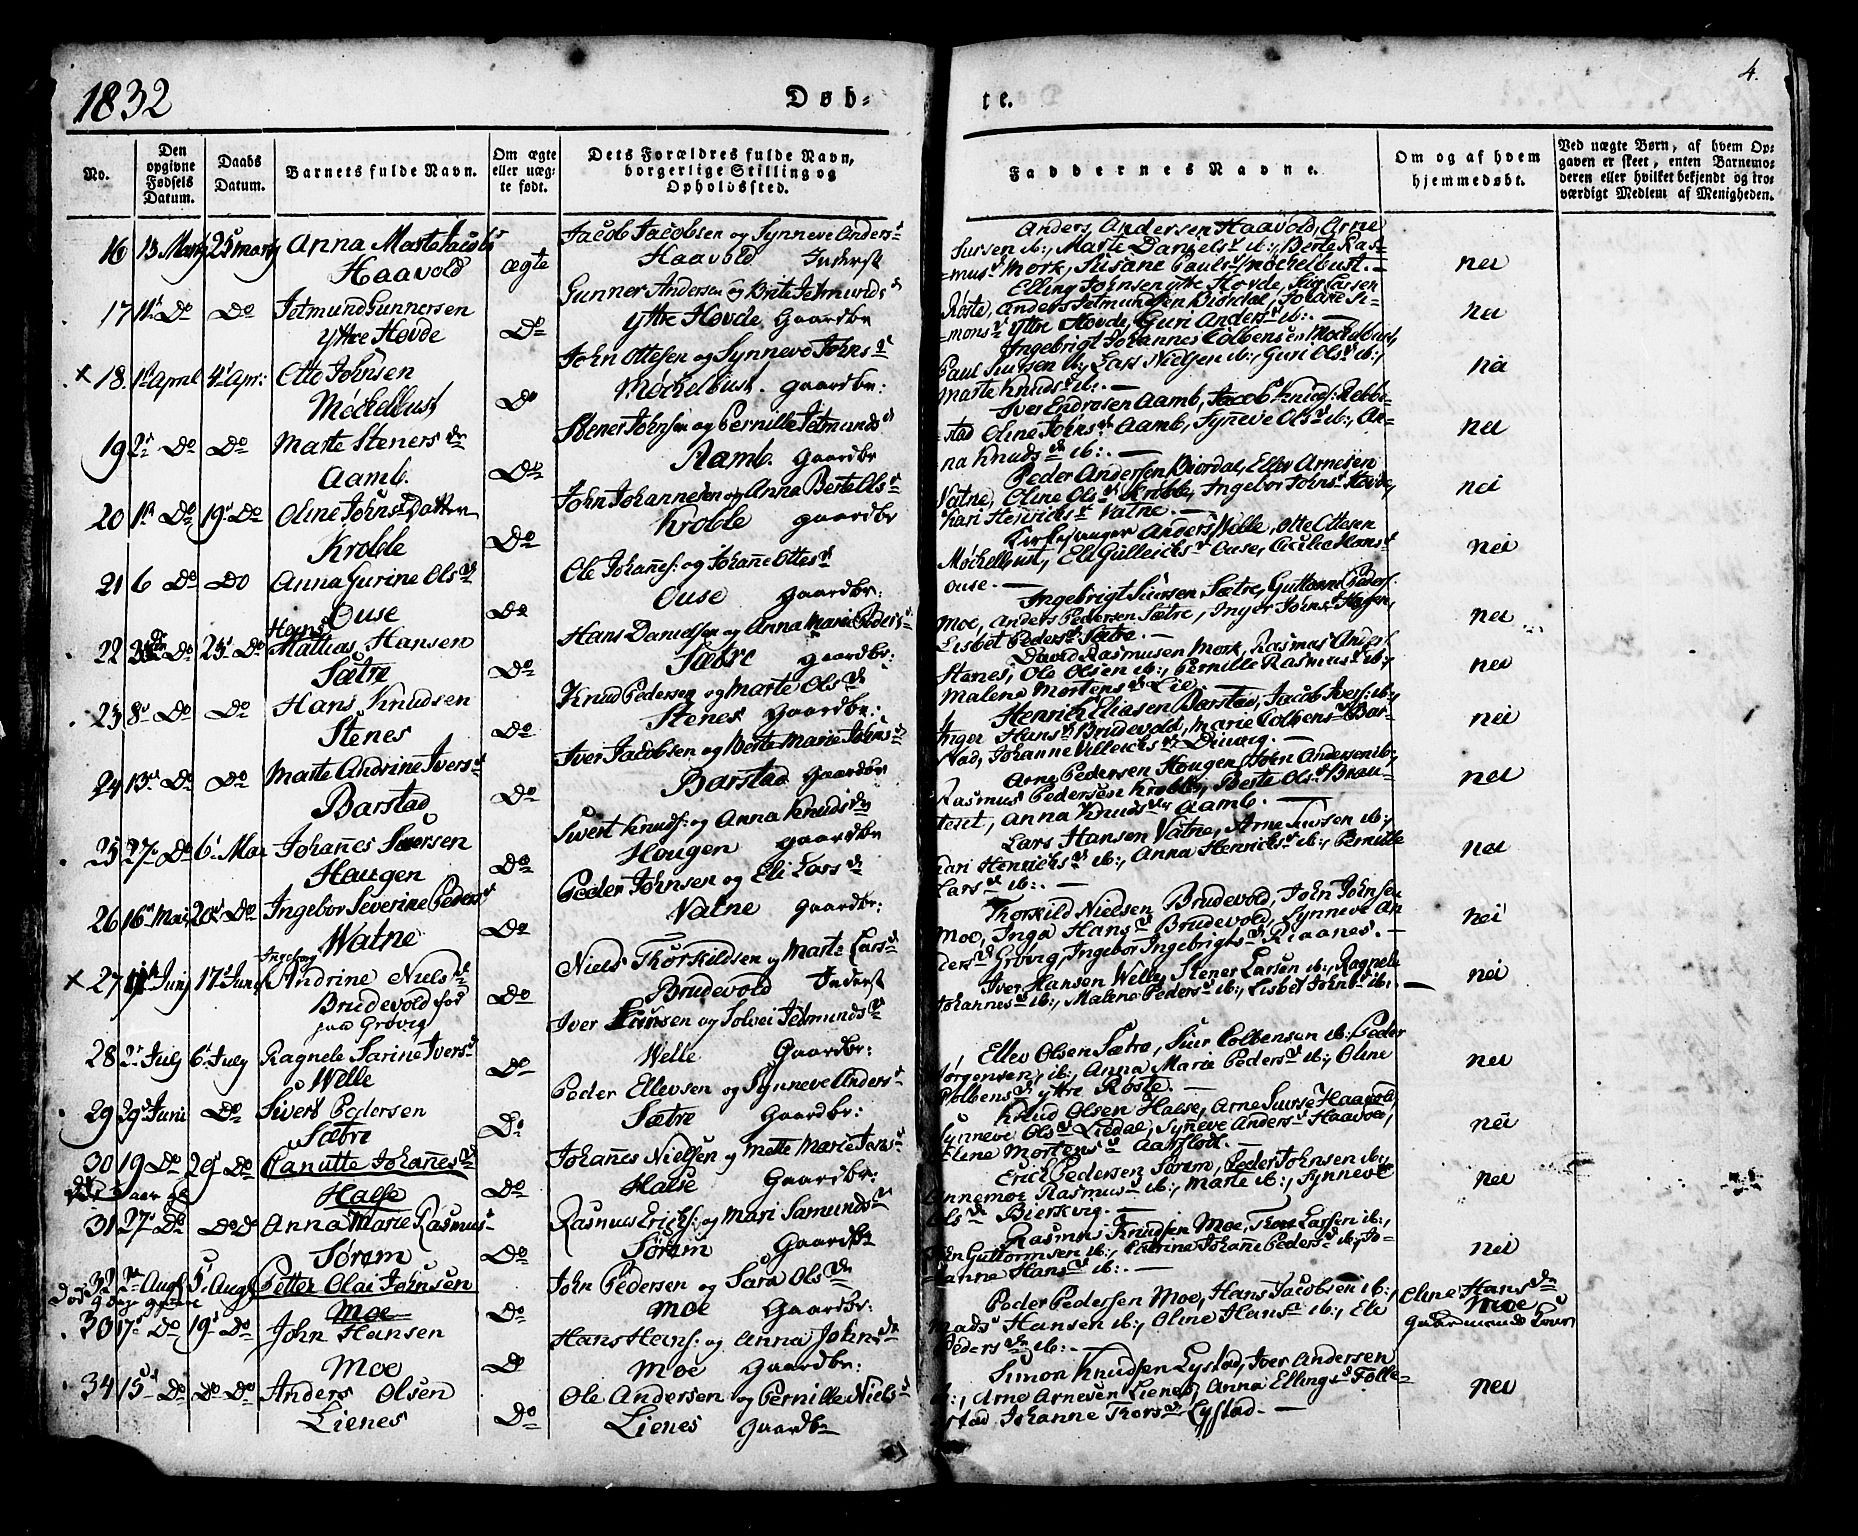 1832
Døb-
te.
4.
No.
Den opgivne Fødsels Datum.
Daabs Datum.
Barnets fulde Navn.
Om ægte eller uægte født.
Dets Forældres fulde Navn, borgerlige Stilling og Opholdssted.
Faddernes Navne.
Om og af hvem hjemmedøbt.
Ved uægte Børn, af hvem Opgaven er skeet, enten Barnemoderen eller hvilket bekjendt og troværdigt Medlem af Menigheden.
16 13 Martj 25 martj Anna Marte Jacobs
Haavold
ægte
Jacob Jacobsen og Synneve Anders
Haavold Inderst
Anders Andersen Haavold, Arne
Sursen ib:, Marte Daniels ib:, Berte Ras-
mus Mork, Susane Pauls Møchelbust. —
nei
17 11 Do Do Jetmund Gunnersen
Yttre Hovde
Do
Gunner Andersen og Brite Jetmunds
yttre Hovde Gaardbr
Elling Johnsen yttre Hovde, Siur Larsen
Røste, Anders Jetmundsen Biørdal, Johane Si-
mons yttre Hovde, Guri Anders ib: —
nei
18. 1 April 4 Apr: Otto Johnsen
Møchelbust
Do
John Ottesen og Synneve Johns
Møchelbust. gaardbr:
Ingebrigt Johannes Colbensen Mochelbust,
Paul Siursen ib:, Lars Nielsen ib:, Guri Ols ib:,
Marte Knuds ib: —
nei
19 2 Do Do Marte Steners
Aamb.
Do
Stener Johnsen og Pernille Jetmunds
Aamb. Gaardbr
Iver Endresen Aamb, Jacob Knuds: Rebbe-
stad Oline Johns Aamb, Synneve Ols ib:, An-
na Knuds ib: —
nei
20 1 Do 19 Do Oline Johns Datter
Kroble
Do
John Johannesen og Anna Berte Ols
Kroble gaardbr
Peder Andersen Biordal, Ellev Arnesen
Vatne, Oline Ols Kroble, Ingebor Johns Hovde,
Kari Henrichs Vatne. —
nei
21 6 Do Do Anna Gurine Ols
Ouse
Do
Ole Johañes: og Johañe Ottes
Ouse Gaardbr:
Kirkesanger Anders Velle, Otte Ottesen
Møchelbust, Eli Gulleichs Ouse, Cecilia Hans
Ouse. —
nei
22 Do 25 Do Hans Mathias Hansen
Sætre
Do
Hans Danielsen og Anna Marie Peders
Sætre gaardbr:
Ingebrigt Siursen Sætre, Guttorm Peders:
Moe, Anders Pedersen Sætre, Inger Johns Hagen,
Lisbet Peders Sætre. —
nei
23 8 Do Do Hans Knudsen
Stenes
Do
Knud Pedersen og Marte Ols
Stenes Gaardbr:
David Rasmusen Mork, Rasmus Anders:
Stenes, Ole Olsen ib:, Pernille Rasmus ib:,
Malene Mortens Lie.
nei
24 13 Do Do Marte Andrine Ivers
Barstad
Do
Iver Jacobsen og Berte Marie Johns
Barstad Gaardbr
Henrich Eliasen Barstad, Jacob Ivers: ib:,
Inger Hans Brudevold, Marie Colbens Bar-
stad, Johanne Villeichs
nei
25 27 Do 6 Mai Johañes Siversen
Haugen
Do
Sivert Knuds: og Anna Knuds
Hougen gaardbr
Arne Pedersen Hougen, John Andersen ib:,
Rasmus Pedersen Kroble, Berte Ols Brau-
teset, Anna Knuds Aamb. —
nei
26 16 Mai 20 Do Ingebor Severine Peders
Watne
Do
Peder Johnsen og Eli Lars
Vatne Gaardbr:
Lars Hansen Vatne, Arne Siursen ib:,
Kari Henrichs ib:, Anna Henrichs ib:, Pernille
Lars ib: —
nei
27 Junj 17 Junj Ingebor Andrine Niels
Brudevold fød
paa Grøvig
Do
Niels Thorkildsen og Marte Lars
Brudevold Inderst
Thorkild Nielsen Brudevold, John Johnsen
Moe, Inga Hans Brudevold, Synneve An-
ders Grøvig, Ingebor Ingebrigts Riaanes. —
nei
28 2 July 6 July Ragnele Sarine Ivers
Welle
Do
Iver Larsen og Solvei Jetmunds
Welle Gaardbr:
Iver Hansen Welle, Stener Larsen ib:, Ragnele
Johannes ib:, Malene Peders ib:, Lisbet Johns ib: —
nei
29 29 Juni Do Sivert Pedersen
Sætre
Do
Peder Ellevsen og Synneve Anders
Sætre Gaardbr:
Ellev Olsen Sætre, Siur Colbensen ib: Peder
Jørgensen, ib:, Anna Marie Peders ib:, Oline
Colbens yttre Røste. —
nei
30 19 Do 29 Do Canutte Johañes
Halse
Do
Johañes Nielsen og Mette Marie Jens
Halse Gaardbr:
Knud Olsen Halse, Arne Siurse Haavold,
Synneve Ols Liedal, Synneve Anders Haavold,
Eline Mortens Aarflod.
nei
31 27 Do Do Do Anna Marie Rasmus
Sørøm
Do
Rasmus Erichs: og Mari Samunds
Sørøm Gaardbr
Erich Pedersen Sørøm, Peder Johnsen ib:,
Annemoe Rasmus ib:, Marte ib:, Synneve
Ols Bierkvig. —
nei
32 Augt 5 Augt Petter Olai Johnsen
Moe
Død 9 dage gammel
Do
John Pedersen og Sara Ols
Moe Gaardbr:
Rasmus Knudsen Moe, Thor Larsen ib:,
John Guttormsen ib:, Catrine Johañe Peders ib:, Jo-
hanne Hans ib: —
nei
33 17 Do 19 Do John Hansen
Moe
Do
Hans Heins: og Anna Johns
Moe Gaardbr:
Peder Pedersen Moe, Hans Jacobsen ib:,
Mads Hansen ib:, Oline Hans ib:, Eli
Peders ib: —
Oline Hans
Moe
Gaardmands
34 15 Do Do Do Anders Olsen
Lienes
Do
Ole Andersen og Pernille Niels
Lienes Gaardbr
Simon Knudsen Lystad, Iver Andersen
ib:, Arne Arnesen Lienes, Anna Ellings Folle-
stad, Johanne Thors Lystad. —
nei